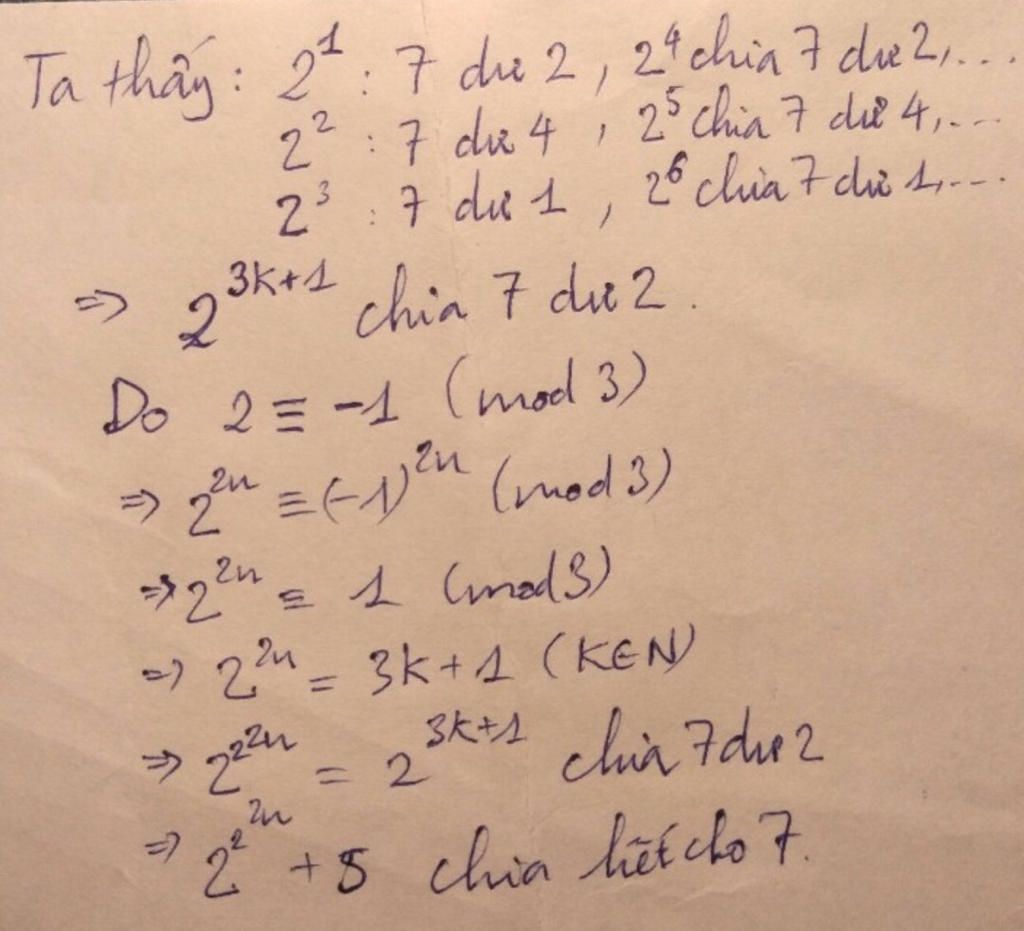 Ta thấy: 2^1 : 7 dư 2, 2^4 chia 7 dư 2,...
2^2 : 7 dư 4, 2^5 chia 7 dư 4,...
2^3 : 7 dư 1, 2^6 chia 7 dư 1,...
=> 2^{3k+1} chia 7 dư 2.
Do 2 ≡ -1 (mod 3)
=> 2^{2n} ≡ (-1)^{2n} (mod 3)
=> 2^{2n} ≡ 1 (mod 3)
=> 2^{2n} = 3k+1 (K∈N)
=> 2^{2^{2n}} = 2^{3k+1} chia 7 dư 2
=> 2^{2^{2n}} + 5 chia hết cho 7.